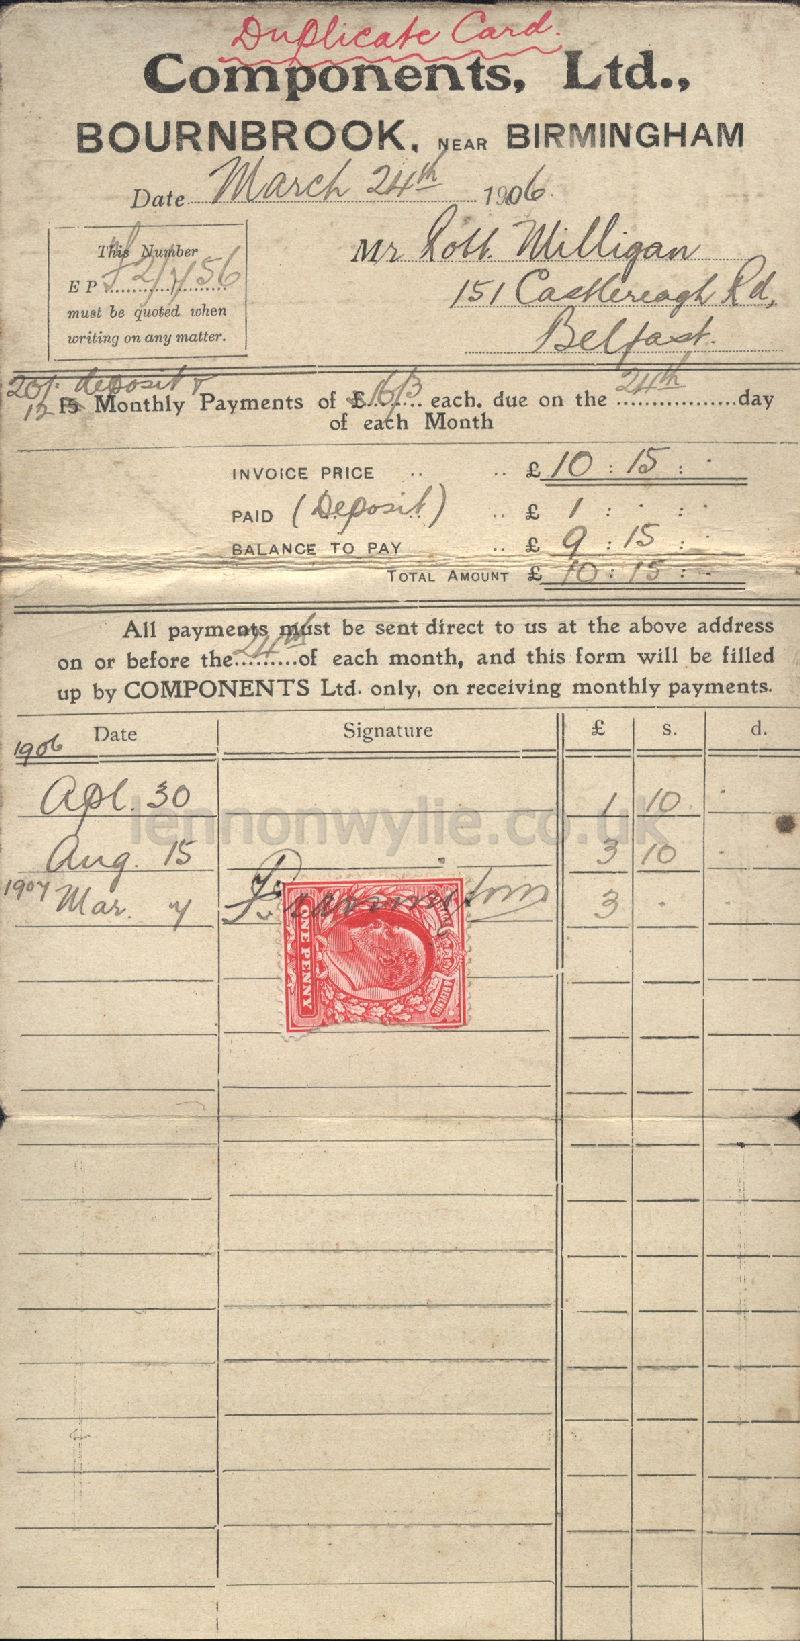 Duplicate Card.
Components, Ltd.,
BOURNBROOK, NEAR BIRMINGHAM
Date March 24th 1906.
This Number
EP
must be quoted when
writing on any matter.
Mr Robt. Milligan
151 Castlereagh Rd,
Belfast.
20/- deposit &
12 15 Monthly Payments of £ 16/3 each, due on the 24th day
of each Month
INVOICE PRICE .. .. £ 10 : 15 : .
PAID (Deposit) .. £ 1 : . : .
BALANCE TO PAY .. £ 9 : 15 :
TOTAL AMOUNT £ 10 : 15 : -
All payments must be sent direct to us at the above address
on or before the 24th of each month, and this form will be filled
up by COMPONENTS Ltd. only, on receiving monthly payments.
1906 Date Signature £ s. d.
Apl. 30 1 10 .
lennonwylie.co.uk
Aug. 15 3 10 .
1907 Mar. 7 3 . .
ONE PENNY